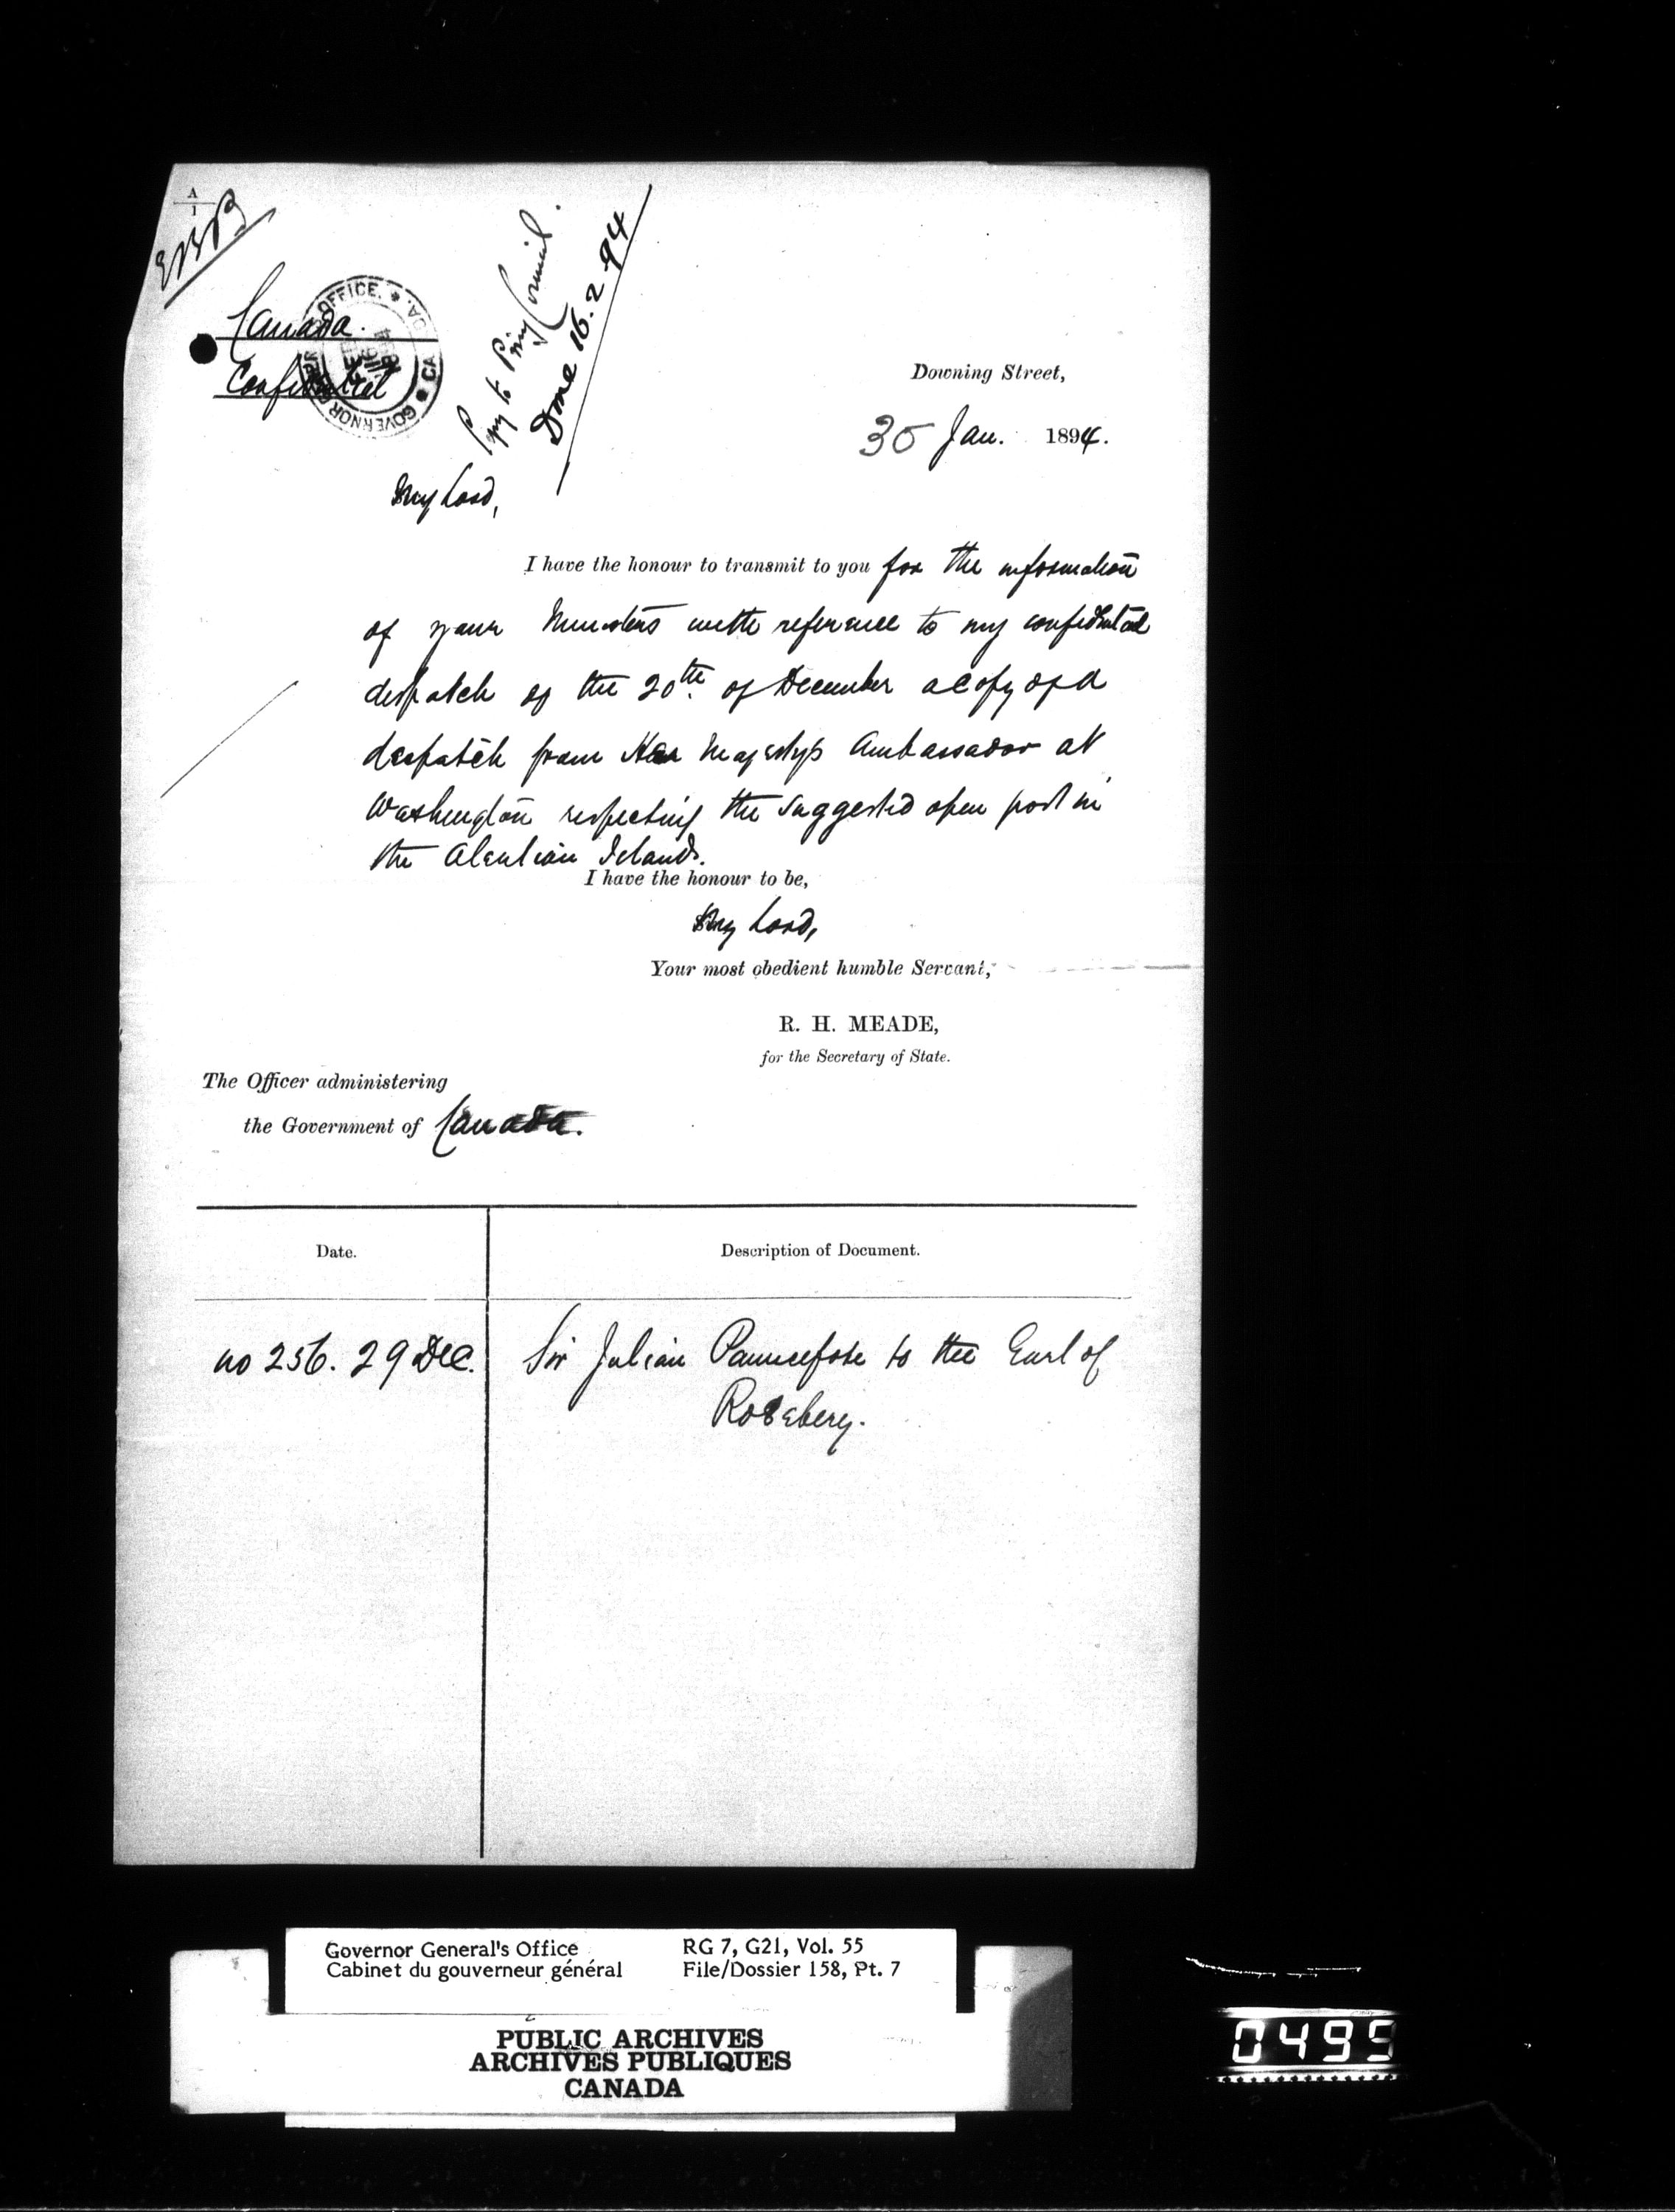 A
1
Canada.
Confidential
GOVERNOR
OFFICE.
CA
DA.
Copy to Privy Council.
Done 16.2.94
Downing Street,
30 Jan. 1894.
My Lord,
I have the honour to transmit to you for the information
of your Ministers with reference to my confidential
despatch of the 20th. of December a copy of a
despatch from Her Majesty's Ambassador at
Washington respecting the suggested open port in
the Aleutian Islands.
I have the honour to be,
My Lord,
Your most obedient humble Servant,
R. H. MEADE,
for the Secretary of State.
The Officer administering
the Government of Canada.
Date.
Description of Document.
no 256. 29 Dec.
Sir Julian Pauncefote to the Earl of
Rosebery.
Governor General's Office
Cabinet du gouverneur général
RG 7, G21, Vol. 55
File/Dossier 158, Pt. 7
PUBLIC ARCHIVES
ARCHIVES PUBLIQUES
CANADA
0495